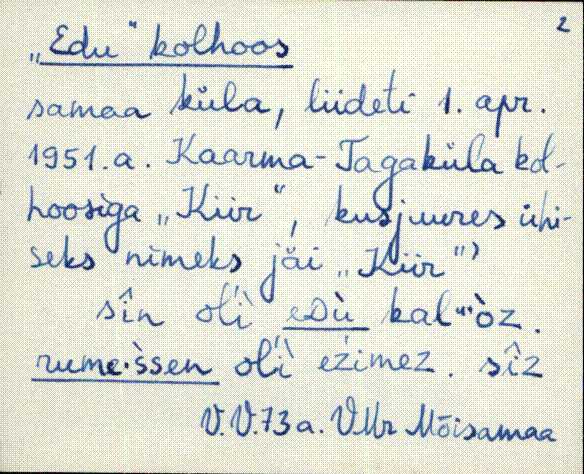 2
„Edu“ kolhoos
samaa küla, liideti 1. apr.
1951. a. Kaarma-Tagaküla kol-
hoosiga „Kiir“, kusjuures ühi-
seks nimeks jäi „Kiir“)
sîn olì eDù kal‴òz.
rume·ìssen olì ezimez. sîz
V.V. 73 a. VMr Mõisamaa